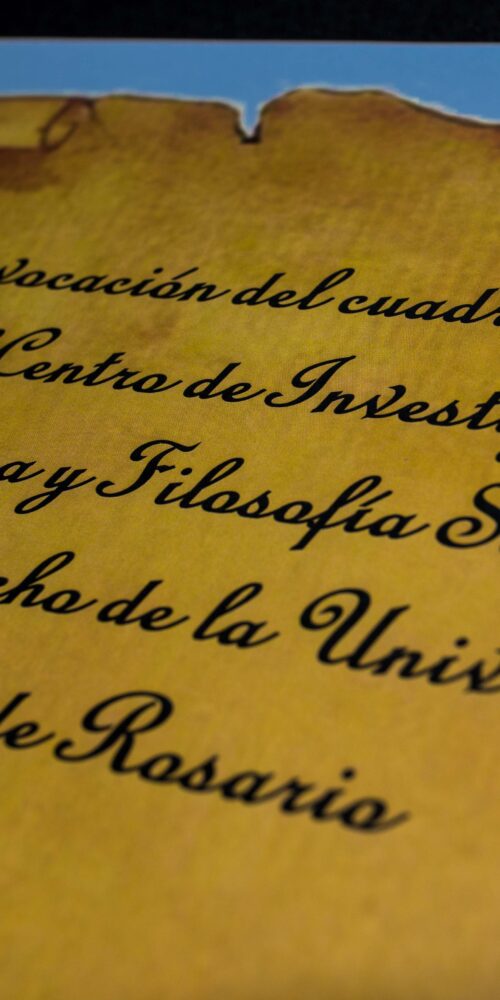 vocación del cuad
Centro de Invest
a y Filosofía S
cho de la Univ
de Rosario